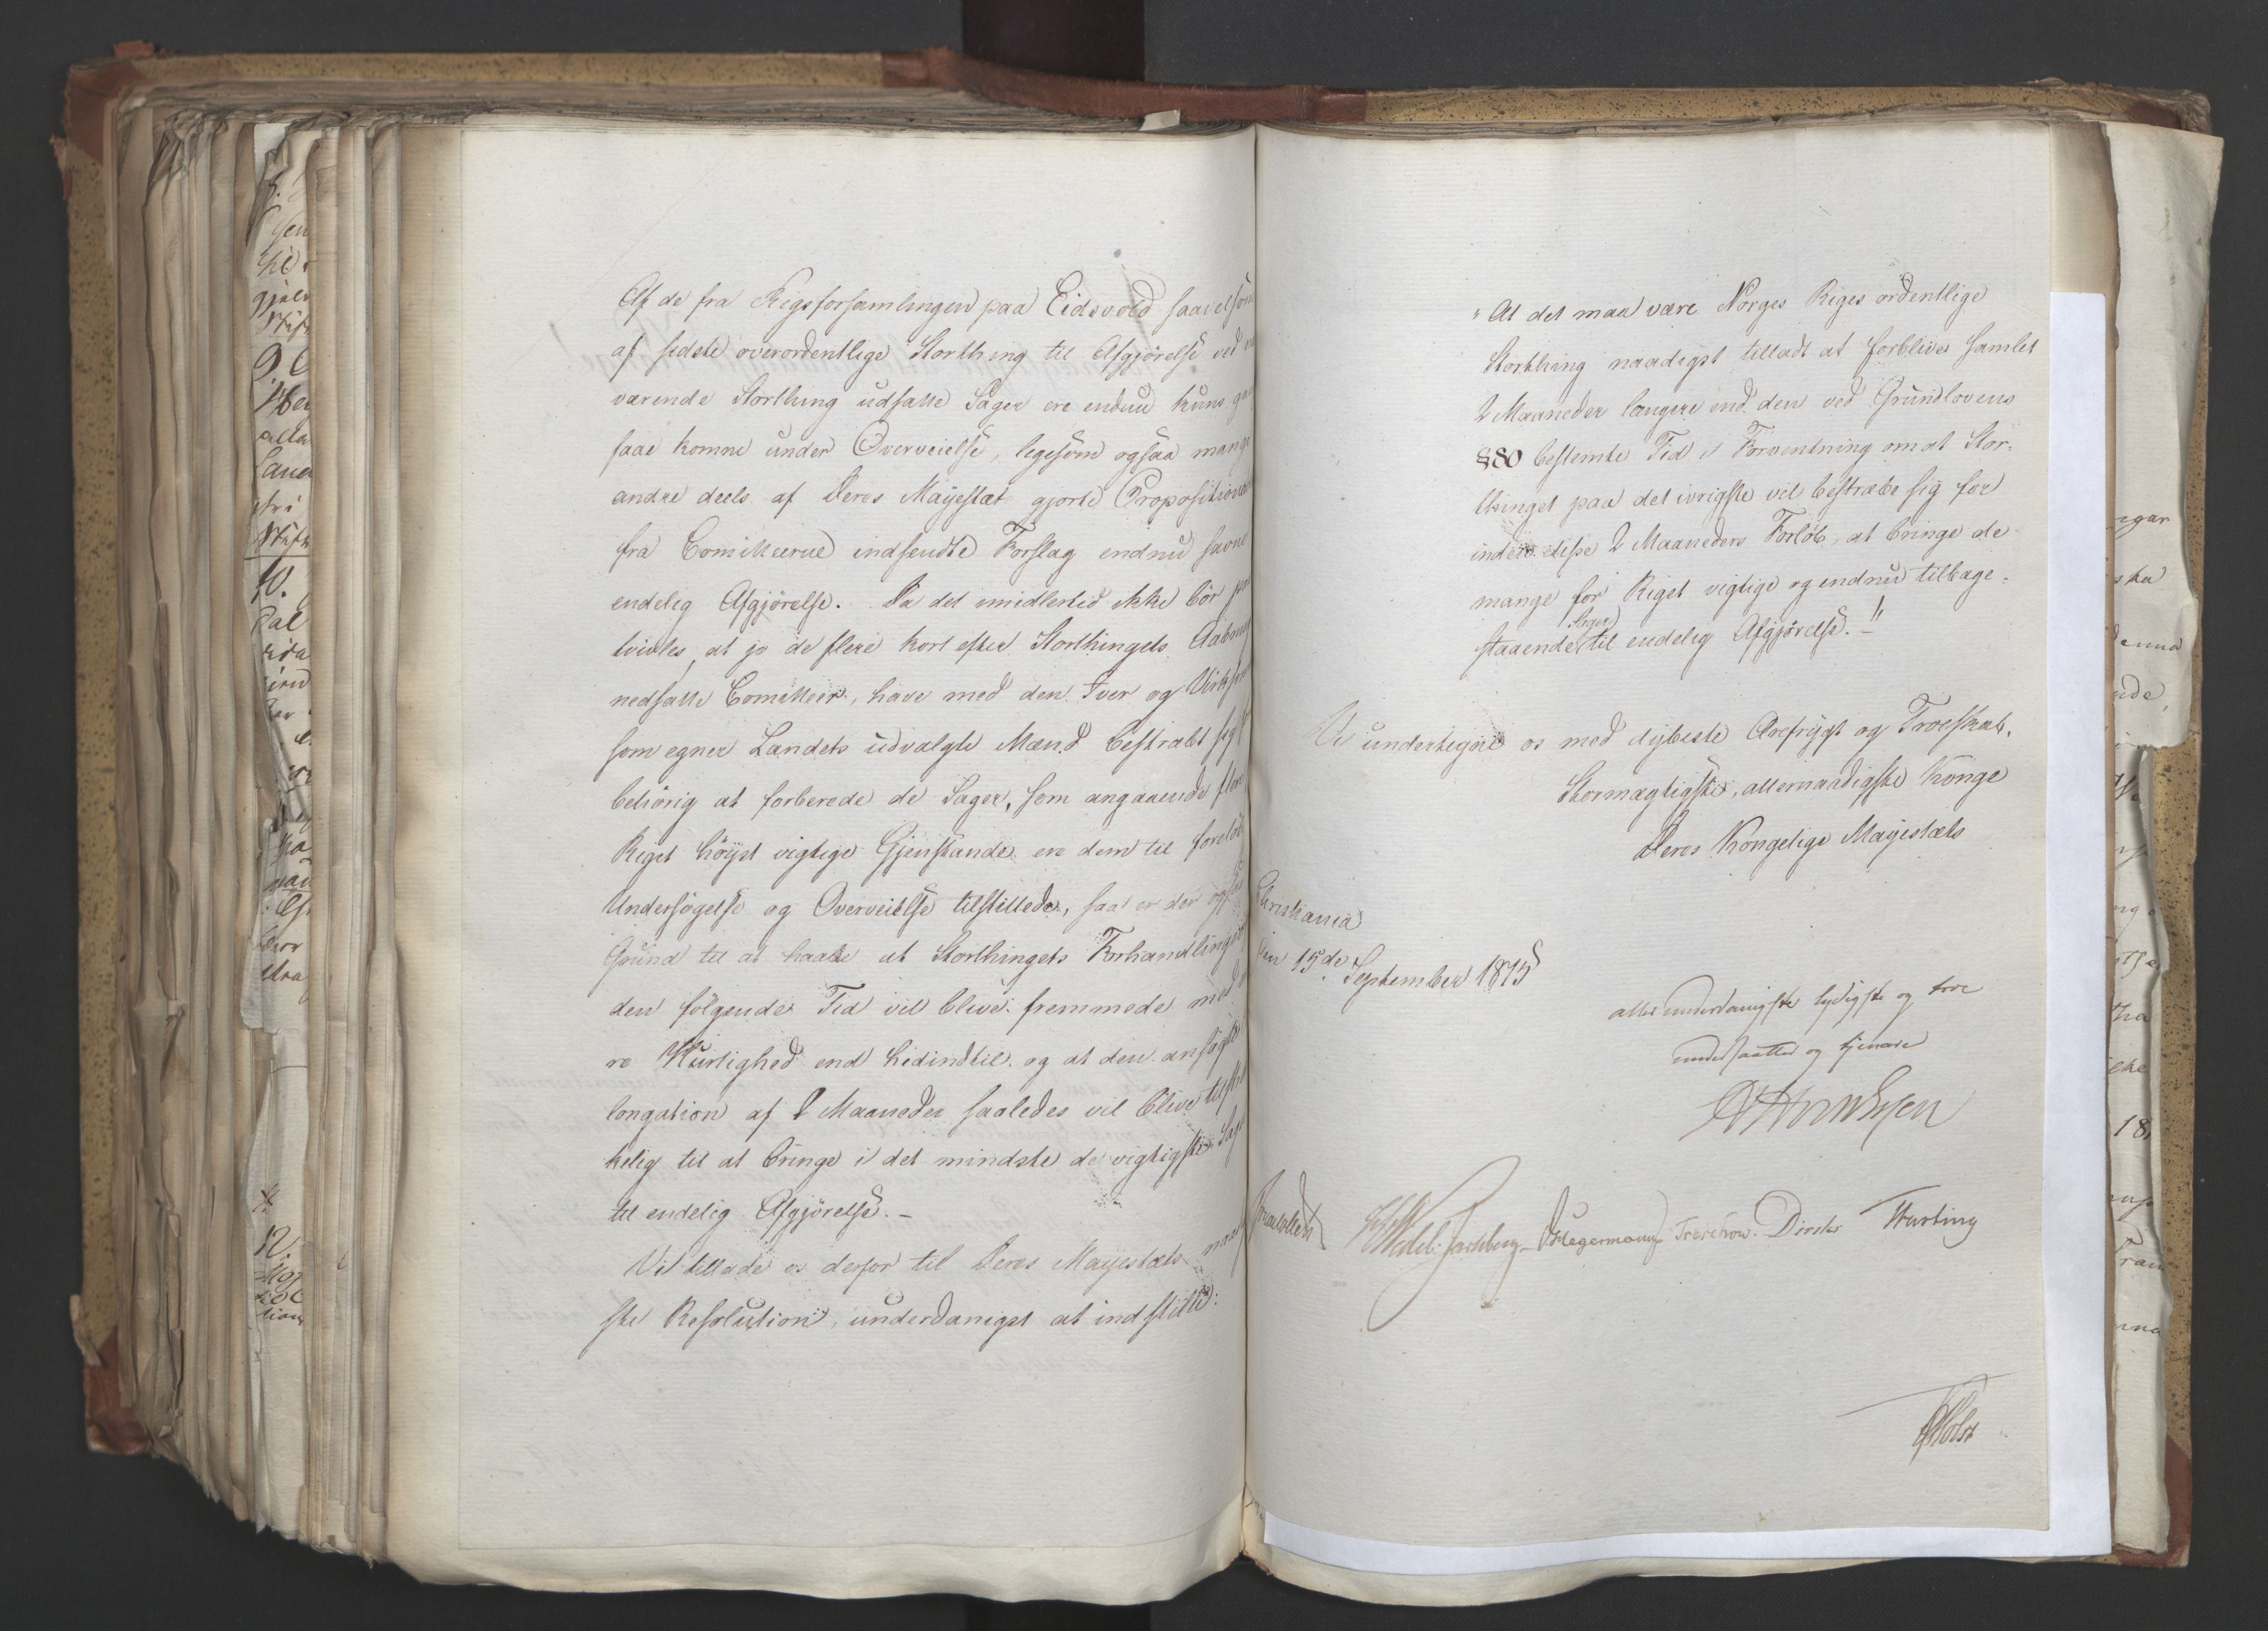 Af de fra Rigsforsamlingen paa Eidsvold saavelsom
af sidste overordentlige Storthing til Afgjörelse ved
værende Storthing udsatte Sager ere endnu kuns
faae komne under Overveielse, ligesom ogsaa mange
andre deels af Deres Mayestæt gjorte Propositioner
fra Comitteerne indsendte Forslag endnu savne
endelig Afgjörelse. Da det imidlertid ikke bör
tvivles, at jo de flere kort efter Storthingets Aabning
nedsatte Comitteer, have med den Iver og
som egner Landets udvalgte Mænd bestræbt sig
behörig at forberede de Sager, som angaaende
Riget höyst vigtige Gjenstande ere dem til
Undersögelse og Overveielse tilstillede, saa er der og
Grund til at haabe at Storthingets Forhandlinger
den fölgende Tid vil blive fremmede med
re Hurtighed end hidindtil og at den ansögte
longation af 2 Maaneder saaledes vil blive
kelig til at bringe i det mindste de vigtigste
til endelig Afgjörelse. -
Vi tillade os derfor til Deres Mayestæts
ste Resolution, underdanigst at indstille:
" At det maa være Norges Riges ordentlige
Storthing naadigst tilladt at forblive samlet
2 Maaneder længere end den ved Grundlovens
§80 bestemte Tid i Forventning om at Stor-
thinget paa det ivrigste vil bestræbe sig for
inden disse 2 Maaneders Forlöb, at bringe de
mange for Riget vigtige og endnu tilbage-
Sager
staaende til endelig Afgjörelse. - "
Vi undertegne os med dybeste Ærefrygt og Troeskab,
Stormægtigste, allernaadigste Konge
Deres Kongelige Mayestæts
Christiania
den 15de September 1815
allerunderdanigste lydigste og troe
undersaatter og tjenere
M Sommerhielm... Wedel Jarlsberg Hegermann Treschow Diriks Hurting
Holst